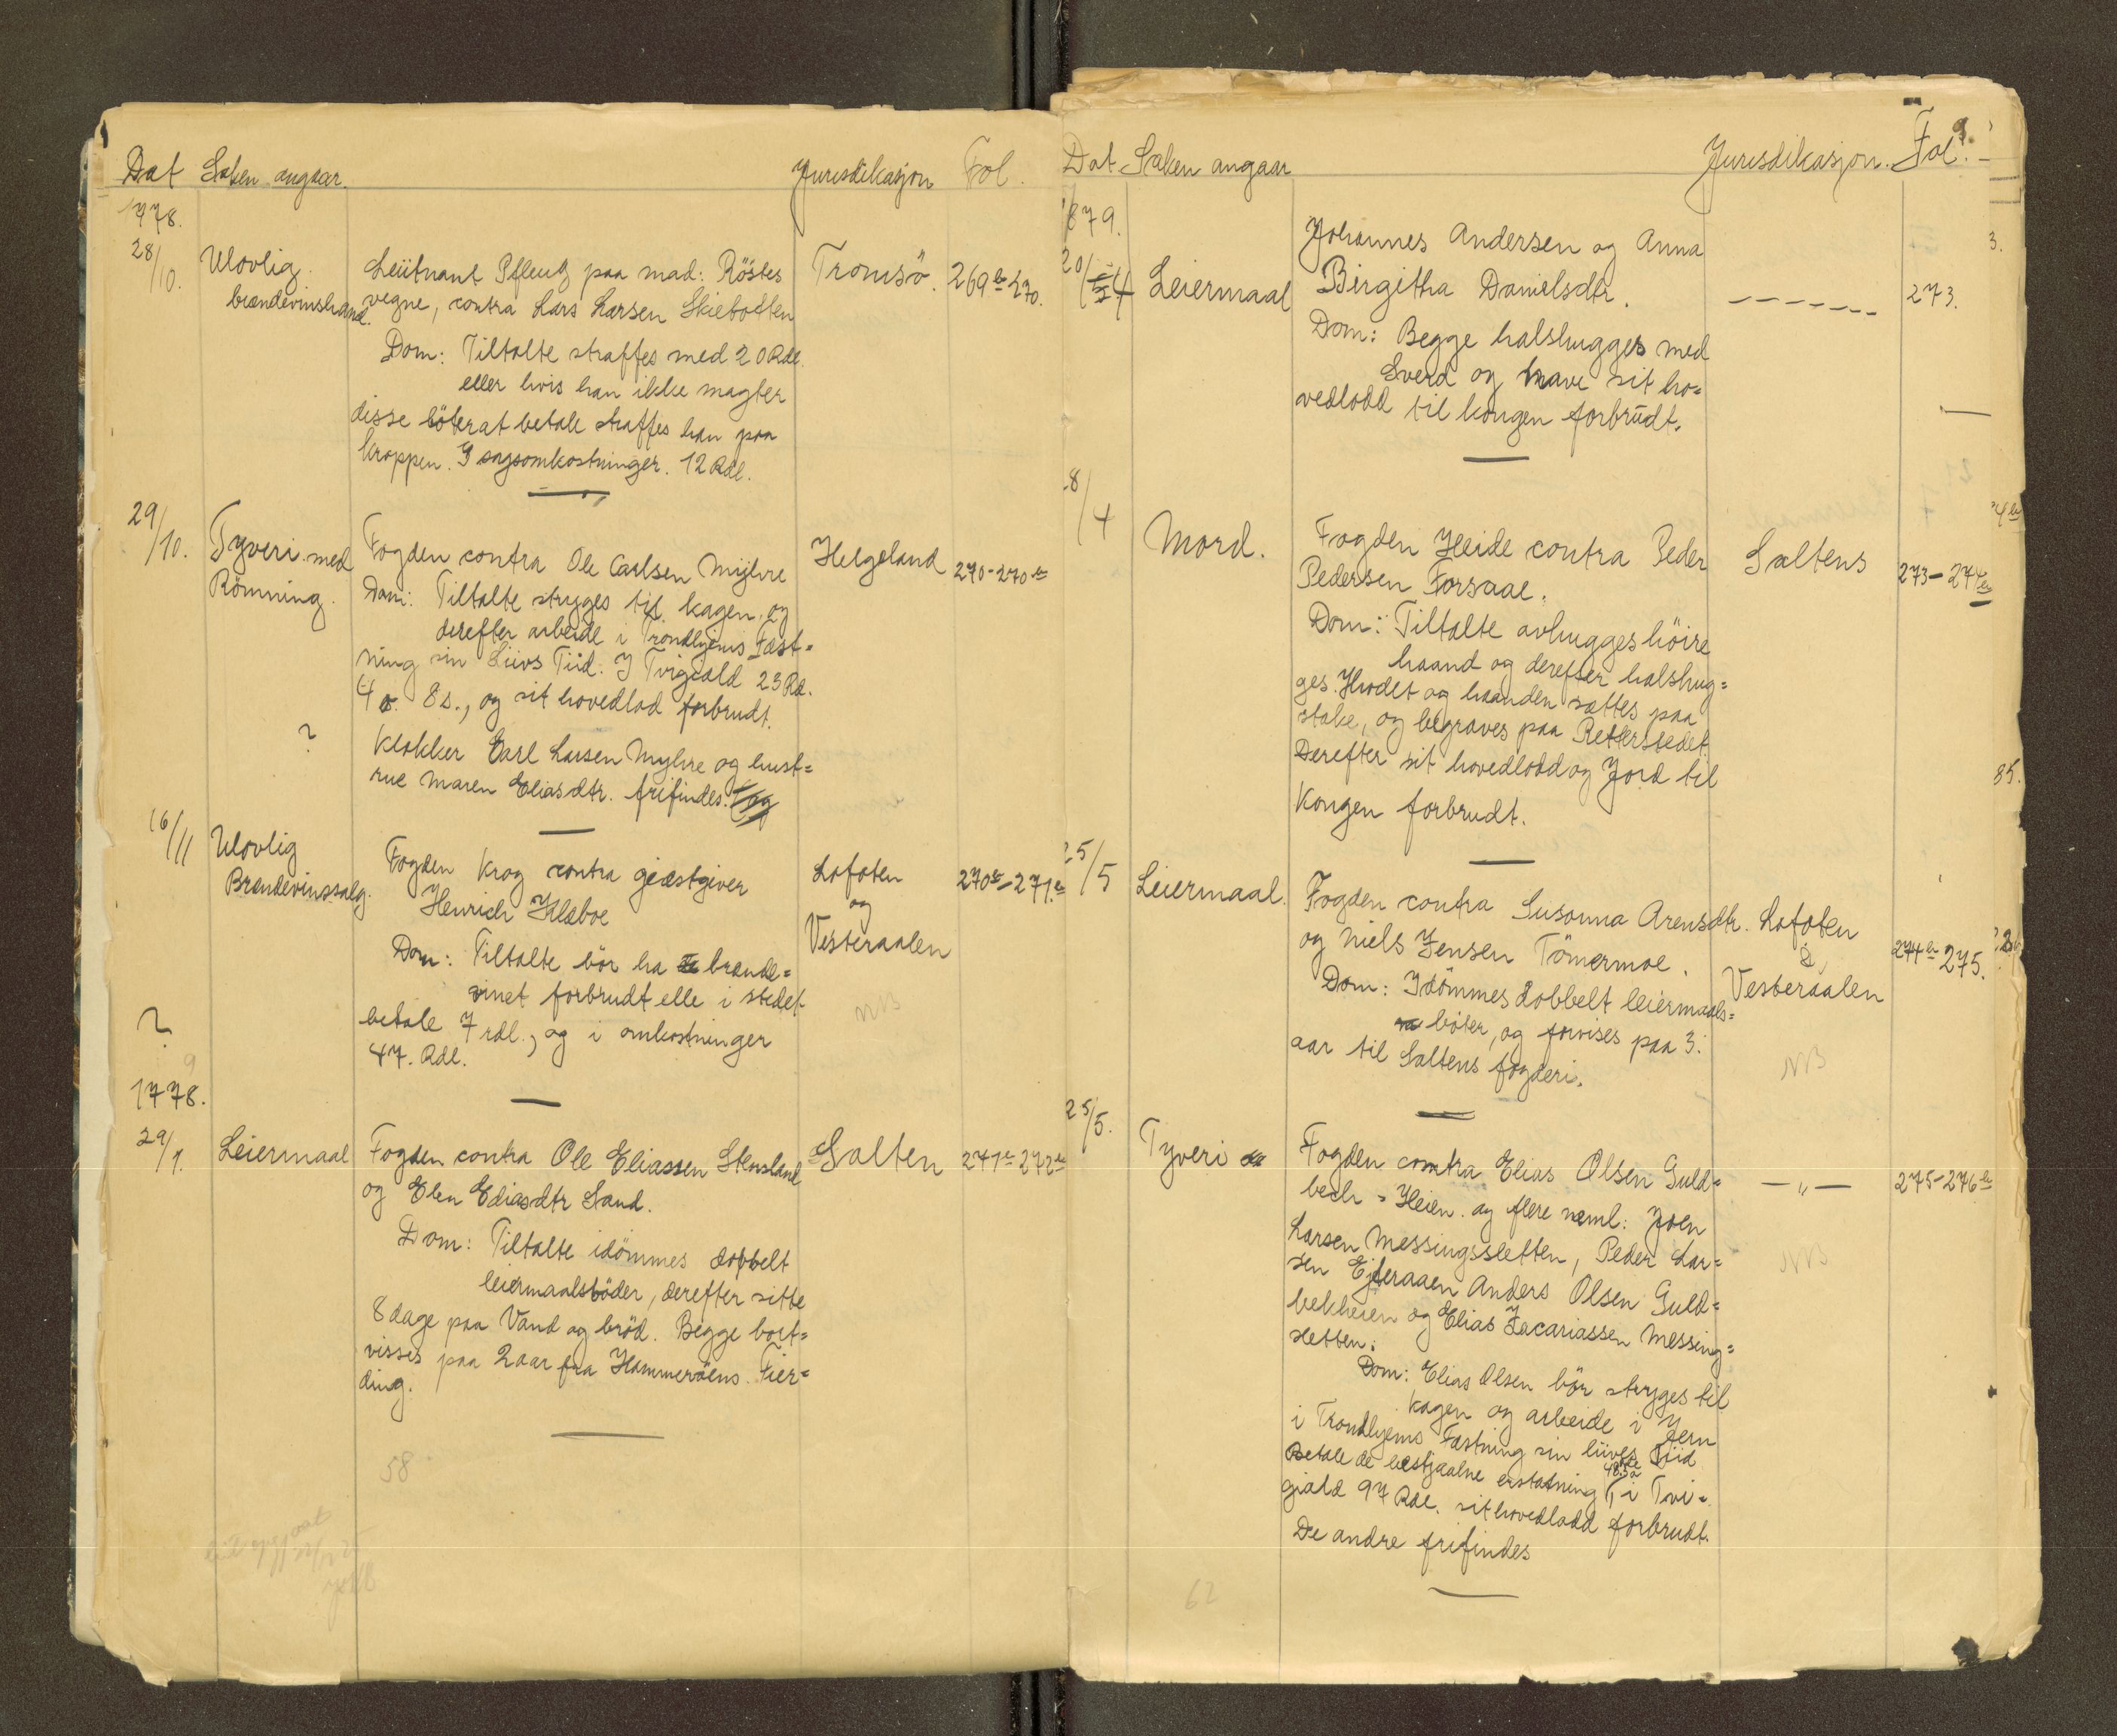 Dat Saken angaar. Jurisdikasjon Fol.
1778.
28/10. Ulovlig brændevinshand.
Leiitnant Pfleug paa mad: Röstes
vegne, contra Lars Larsen Skiebotten
Tromsö. 269b-270.
Dom: Tiltalte straffes med 20 Rdl.
eller hvis han ikke magter
disse böter at betale straffes han paa
kroppen. I sagsomkostninger. 12 Rdl.
29/10. Tyveri med
Römning.
Fogden contra Ole Carlsen Myhre
Helgeland 270-270b
Dom: Tiltalte stryges til kagen, og
derefter arbeide i Trondhjems Fæst=
ning sin Liivs Tiid: I Tvigiald 23 Rd.
4 o. 8 s., og sit hovedlod forbrudt.
?
Klokker Carl Larsen Myhre og hust=
rue Maren Eliasdtr. frifindes. og
16/11 Ulovlig
Brændevinssalg.
Fogden Krog contra giæstgiver
Henrich Klæboe
Lofoten
og
Vesteraalen
270b-271b
Dom: Tiltalte bör ha brænde=
vinet forbrudt elle i stedet
betale 7 rdl., og i omkostninger
47. Rdl.
NB
?
9
1778.
29/1. Leiermaal
Fogden contra Ole Eliassen Stensland
og Elen Ediasdtr Sand.
Salten 271b 272b
Dom: Tiltalte idömmes dobbelt
leiermaalsböder, derefter sitte
8 dage paa Vand og bröd. Begge bort=
visses paa 2 aar fra Hammeröens Fier=
ding.
58
Dat Saken angaar Jurisdikasjon. Fol.
9.
1879.
20/4 Leiermaal
Johannes Andersen og Anna
Birgitha Danielsdtr.
------ 273.
Dom: Begge halshugges med
Sverd og have sit ho=
vedlodd til kongen forbrudt.
28/4 Mord.
Fogden Heide contra Peder
Pedersen Forsaae.
Saltens 273-274b
Dom: Tiltalte avhugges höire
haand og derefter halshug=
ges. Hodet og haanden sættes paa
stake, og begraves paa Retterstedet.
Derefter sit hovedlodd og Jord til
Kongen forbrudt.
25/5 Leiermaal.
Fogden contra Susanna Arensdtr.
og Niels Jensen Tömermoe.
Lofoten
&
Vesteraalen
274b 275.
Dom: Idömmes dobbelt leiermaals=
böter, og forvises paa 3.
aar til Saltens fogderi.
NB
25/5. Tyveri
Fogden contra Elias Olsen Guld=
bech=Heien. og flere neml: Joen
Larsen Messingssletten, Peder Lar=
sen Ejteraaen Anders Olsen Guld=
bekheien og Elias Zacariassen Messing=
sletten.
—"— 275-276b
NB
Dom: Elias Olsen bör stryges til
Kagen og arbeide i Jern
i Trondhjems Fæstning sin liivs Tiid
Betale de bestjaalne erstatning i Tvi=
giald 97 Rdl. sit hovedlodd forbrudt.
De andre frifindes
62
3.
4b
85.